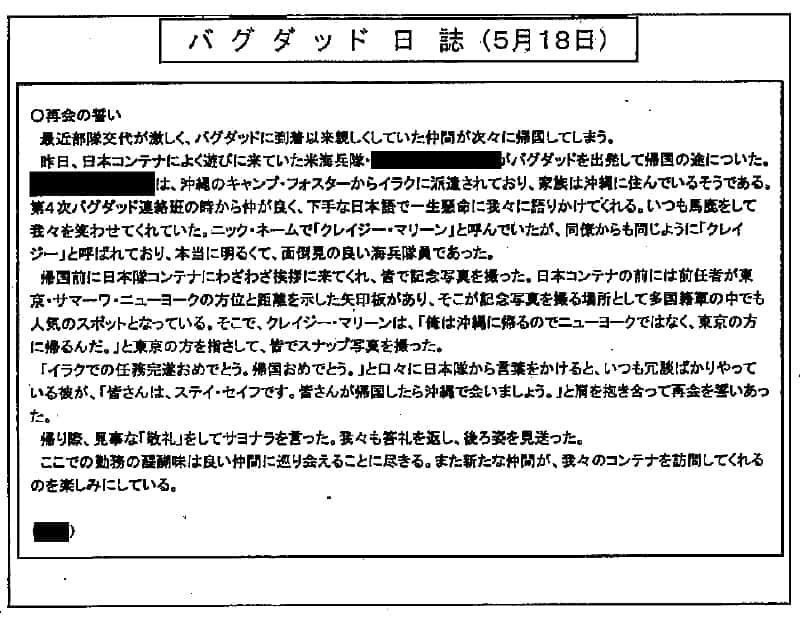 バグダッド日誌（5月18日）
〇再会の誓い
最近部隊交代が激しく、バグダッドに到着以来親しくしていた仲間が次々に帰国してしまう。
昨日、日本コンテナによく遊びに来ていた米海兵隊・がバグダッドを出発して帰国の途についた。
は、沖縄のキャンプ・フォスターからイラクに派遣されており、家族は沖縄に住んでいるそうである。
第４次バグダッド連絡班の時から仲が良く、下手な日本語で一生懸命に我々に語りかけてくれる。いつも馬鹿をして
我々を笑わせてくれていた。ニック・ネームで「クレイジー・マリーン」と呼んでいたが、同僚からも同じように「クレイ
ジー」と呼ばれており、本当に明るくて、面倒見の良い海兵隊員であった。
帰国前に日本隊コンテナにわざわざ挨拶に来てくれ、皆で記念写真を撮った。日本コンテナの前には前任者が東
京・サマーワ・ニューヨークの方位と距離を示した矢印板があり、そこが記念写真を撮る場所として多国籍軍の中でも
人気のスポットとなっている。そこで、クレイジー・マリーンは、「俺は沖縄に帰るのでニューヨークではなく、東京の方
に帰るんだ。」と東京の方を指さして、皆でスナップ写真を撮った。
「イラクでの任務完遂おめでとう。帰国おめでとう。」と口々に日本隊から言葉をかけると、いつも冗談ばかりやって
いる彼が、「皆さんは、ステイ・セイフです。皆さんが帰国したら沖縄で会いましょう。」と肩を抱き合って再会を誓いあっ
た。
帰り際、見事な「敬礼」をしてサヨナラを言った。我々も答礼を返し、後ろ姿を見送った。
ここでの勤務の醍醐味は良い仲間に巡り会えることに尽きる。また新たな仲間が、我々のコンテナを訪問してくれる
のを楽しみにしている。
（）